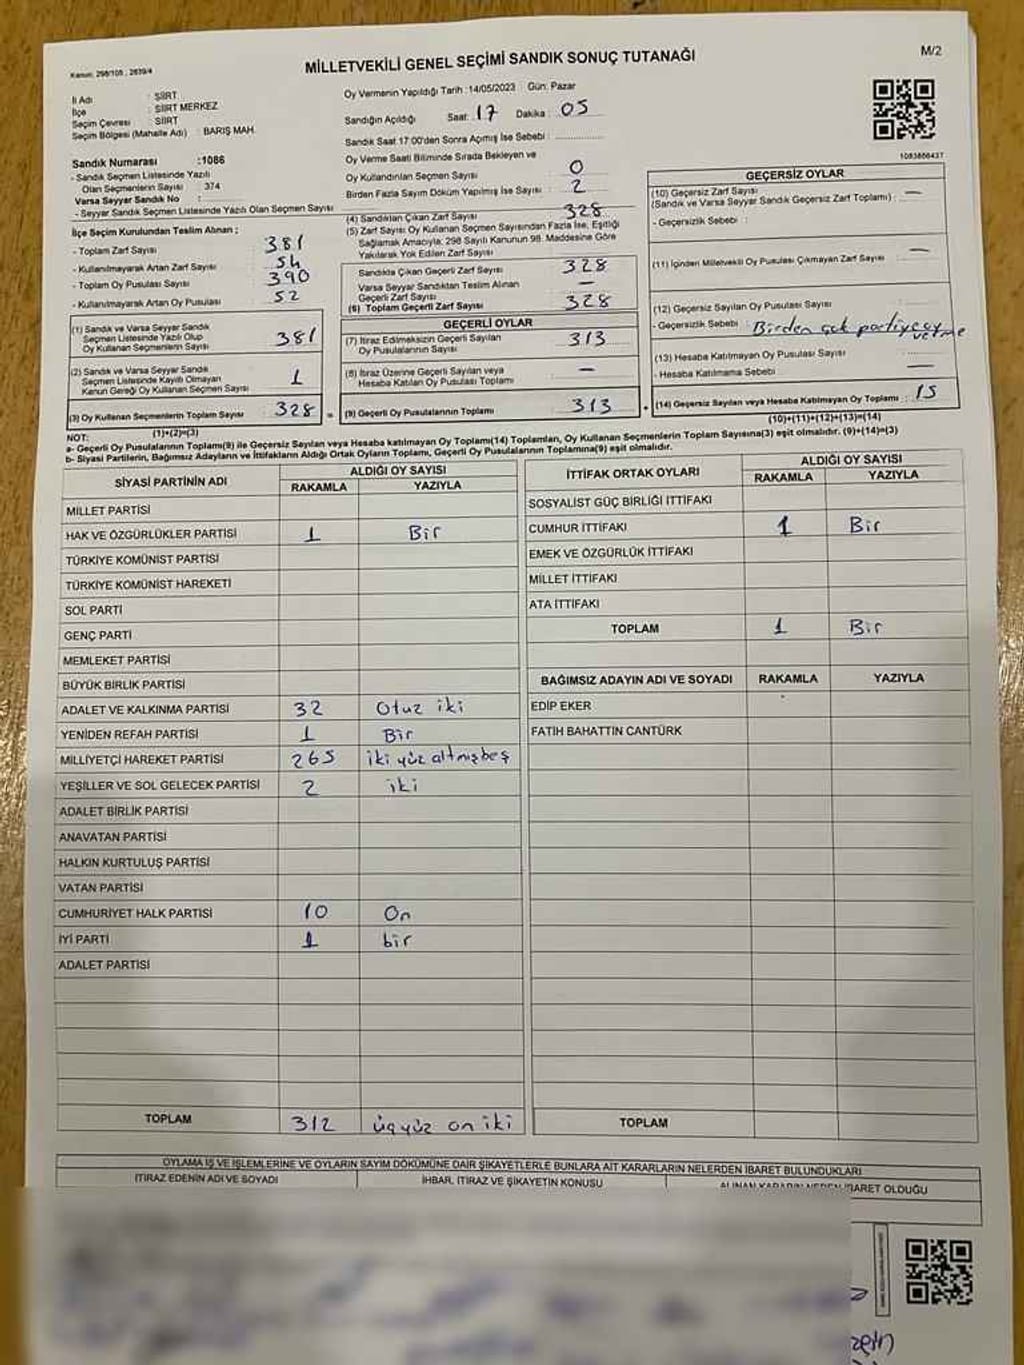 Kanun: 298/105 , 2839/4
MİLLETVEKİLİ GENEL SEÇİMİ SANDIK SONUÇ TUTANAĞI
M/2
İl Adı : SİİRT
İlçe : SİİRT MERKEZ
Seçim Çevresi : SİİRT
Seçim Bölgesi (Mahalle Adı) : BARIŞ MAH.
Sandık Numarası :1086
- Sandık Seçmen Listesinde Yazılı
Olan Seçmenlerin Sayısı : 374
Varsa Seyyar Sandık No :
- Seyyar Sandık Seçmen Listesinde Yazılı Olan Seçmen Sayısı :
İlçe Seçim Kurulundan Teslim Alınan ;
- Toplam Zarf Sayısı : 381
- Kullanılmayarak Artan Zarf Sayısı : 54
- Toplam Oy Pusulası Sayısı : 390
- Kullanılmayarak Artan Oy Pusulası : 52
(1) Sandık ve Varsa Seyyar Sandık
Seçmen Listesinde Yazılı Olup
Oy Kullanan Seçmenlerin Sayısı 381
(2) Sandık ve Varsa Seyyar Sandık
Seçmen Listesinde Kayıtlı Olmayan
Kanun Gereği Oy Kullanan Seçmen Sayısı 1
(3) Oy Kullanan Seçmenlerin Toplam Sayısı 328 =
(1)+(2)=(3)
Oy Vermenin Yapıldığı Tarih :14/05/2023 Gün: Pazar
Sandığın Açıldığı Saat: 17 Dakika : 05
Sandık Saat 17:00'den Sonra Açılmış İse Sebebi :
Oy Verme Saati Bitiminde Sırada Bekleyen ve
Oy Kullandırılan Seçmen Sayısı : 0
Birden Fazla Sayım Döküm Yapılmış İse Sayısı : 2
(4) Sandıktan Çıkan Zarf Sayısı : 328
(5) Zarf Sayısı Oy Kullanan Seçmen Sayısından Fazla İse, Eşitliği
Sağlamak Amacıyla; 298 Sayılı Kanunun 98. Maddesine Göre
Yakılarak Yok Edilen Zarf Sayısı :
Sandıkta Çıkan Geçerli Zarf Sayısı 328
Varsa Seyyar Sandıktan Teslim Alınan
Geçerli Zarf Sayısı —
(6) Toplam Geçerli Zarf Sayısı 328
GEÇERLİ OYLAR
(7) İtiraz Edilmeksizin Geçerli Sayılan
Oy Pusulalarının Sayısı 313
(8) İtiraz Üzerine Geçerli Sayılan veya
Hesaba Katılan Oy Pusulası Toplamı —
(9) Geçerli Oy Pusulalarının Toplamı 313 +
1083866437
GEÇERSİZ OYLAR
(10) Geçersiz Zarf Sayısı
(Sandık ve Varsa Seyyar Sandık Geçersiz Zarf Toplamı) : —
- Geçersizlik Sebebi :
(11) İçinden Milletvekili Oy Pusulası Çıkmayan Zarf Sayısı : —
(12) Geçersiz Sayılan Oy Pusulası Sayısı
- Geçersizlik Sebebi : Birden çok partiye oy verme
(13) Hesaba Katılmayan Oy Pusulası Sayısı
- Hesaba Katılmama Sebebi : —
(14) Geçersiz Sayılan veya Hesaba Katılmayan Oy Toplamı : 15
(10)+(11)+(12)+(13)=(14)
NOT:
a- Geçerli Oy Pusulalarının Toplamı(9) ile Geçersiz Sayılan veya Hesaba katılmayan Oy Toplamı(14) Toplamları, Oy Kullanan Seçmenlerin Toplam Sayısına(3) eşit olmalıdır. (9)+(14)=(3)
b- Siyasi Partilerin, Bağımsız Adayların ve İttifakların Aldığı Ortak Oyların Toplamı, Geçerli Oy Pusulalarının Toplamına(9) eşit olmalıdır.
SİYASİ PARTİNİN ADI ALDIĞI OY SAYISI
RAKAMLA YAZIYLA
MİLLET PARTİSİ
HAK VE ÖZGÜRLÜKLER PARTİSİ 1 Bir
TÜRKİYE KOMÜNİST PARTİSİ
TÜRKİYE KOMÜNİST HAREKETİ
SOL PARTİ
GENÇ PARTİ
MEMLEKET PARTİSİ
BÜYÜK BİRLİK PARTİSİ
ADALET VE KALKINMA PARTİSİ 32 Otuz iki
YENİDEN REFAH PARTİSİ 1 Bir
MİLLİYETÇİ HAREKET PARTİSİ 265 iki yüz altmışbeş
YEŞİLLER VE SOL GELECEK PARTİSİ 2 iki
ADALET BİRLİK PARTİSİ
ANAVATAN PARTİSİ
HALKIN KURTULUŞ PARTİSİ
VATAN PARTİSİ
CUMHURİYET HALK PARTİSİ 10 On
İYİ PARTİ 1 bir
ADALET PARTİSİ
TOPLAM 312 üçyüz on iki
İTTİFAK ORTAK OYLARI ALDIĞI OY SAYISI
RAKAMLA YAZIYLA
SOSYALİST GÜÇ BİRLİĞİ İTTİFAKI
CUMHUR İTTİFAKI 1 Bir
EMEK VE ÖZGÜRLÜK İTTİFAKI
MİLLET İTTİFAKI
ATA İTTİFAKI
TOPLAM 1 Bir
BAĞIMSIZ ADAYIN ADI VE SOYADI RAKAMLA YAZIYLA
EDİP EKER
FATİH BAHATTİN CANTÜRK
TOPLAM
OYLAMA İŞ VE İŞLEMLERİNE VE OYLARIN SAYIM DÖKÜMÜNE DAİR ŞİKAYETLERLE BUNLARA AİT KARARLARIN NELERDEN İBARET BULUNDUKLARI
İTİRAZ EDENİN ADI VE SOYADI İHBAR, İTİRAZ VE ŞİKAYETİN KONUSU ALINAN KARARIN NEDEN İBARET OLDUĞU